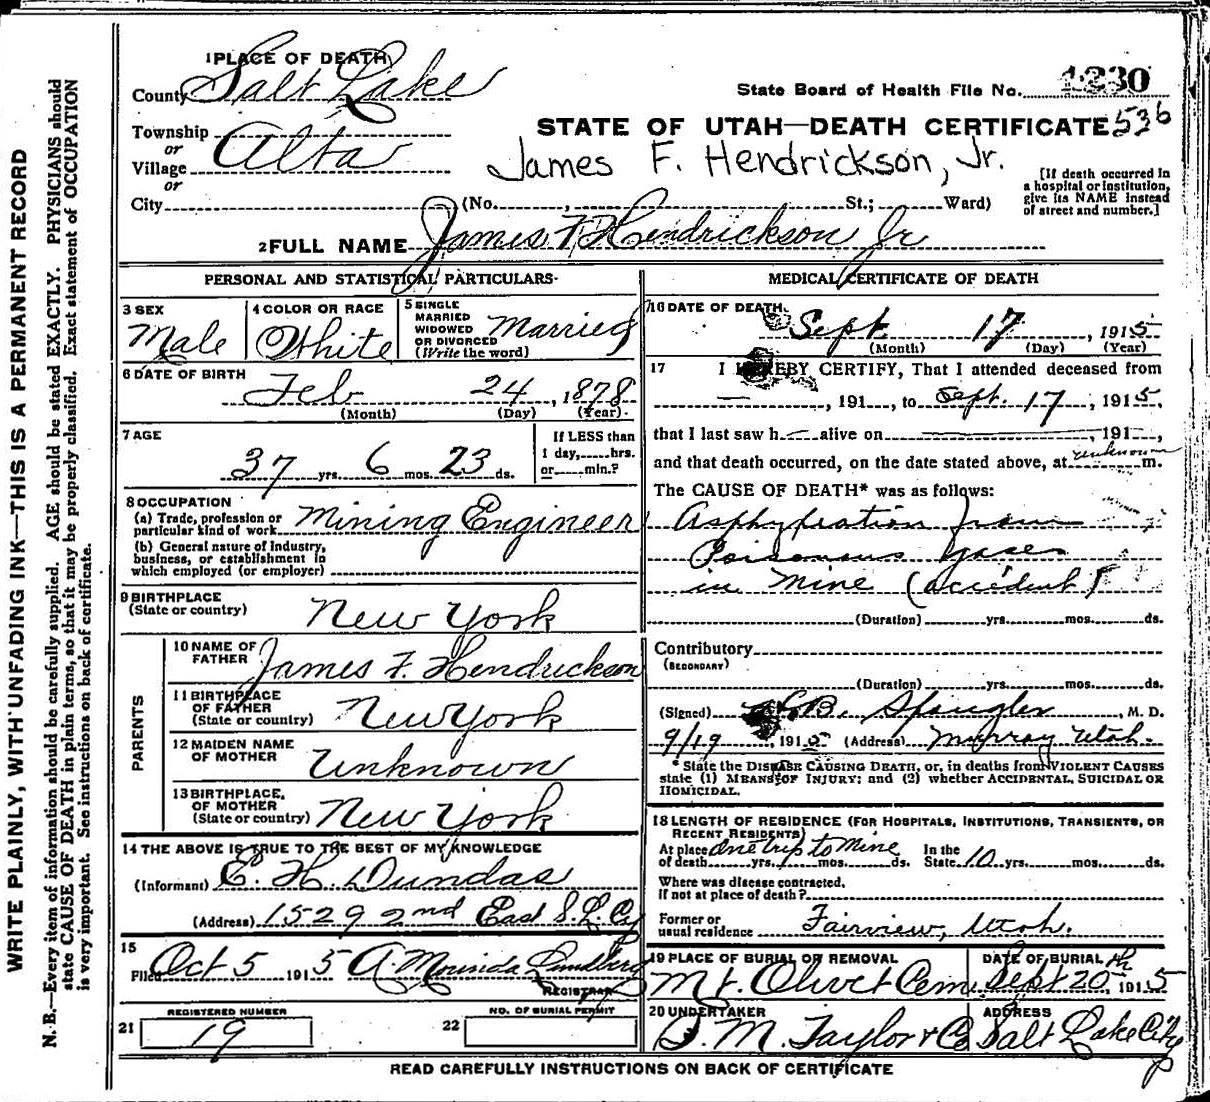 1 PLACE OF DEATH
County Salt Lake
State Board of Health File No. 1230
Township
or
Village Alta
or
City (No. , St.; Ward)
STATE OF UTAH—DEATH CERTIFICATE 536
James F. Hendrickson, Jr.
[If death occurred in
a hospital or institution,
give its NAME instead
of street and number.]
2 FULL NAME James F. Hendrickson Jr
PERSONAL AND STATISTICAL PARTICULARS
3 SEX
Male
4 COLOR OR RACE
White
5 SINGLE
MARRIED
WIDOWED
OR DIVORCED
(Write the word)
Married
6 DATE OF BIRTH
Feb 24, 1878
(Month) (Day) (Year)
7 AGE
37 yrs. 6 mos. 23 ds.
If LESS than
1 day, hrs.
or min.?
8 OCCUPATION
(a) Trade, profession or
particular kind of work Mining Engineer
(b) General nature of industry,
business, or establishment in
which employed (or employer)
9 BIRTHPLACE
(State or country) New York
PARENTS
10 NAME OF
FATHER James F. Hendrickson
11 BIRTHPLACE
OF FATHER
(State or country) New York
12 MAIDEN NAME
OF MOTHER Unknown
13 BIRTHPLACE
OF MOTHER
(State or country) New York
14 THE ABOVE IS TRUE TO THE BEST OF MY KNOWLEDGE
(Informant) E. H. Dundas
(Address) 1529 2nd East S. L. Cy
15
Filed Oct 5 1915 A. Lundberg
REGISTRAR
REGISTERED NUMBER
21 19
NO. OF BURIAL PERMIT
22
MEDICAL CERTIFICATE OF DEATH
16 DATE OF DEATH
Sept. 17, 1915
(Month) (Day) (Year)
17 I HEREBY CERTIFY, That I attended deceased from
— , 191 , to Sept. 17, 1915,
that I last saw h alive on , 191 ,
and that death occurred, on the date stated above, at unknown m.
The CAUSE OF DEATH* was as follows:
Asphyxiation from
Poisonous gases
in Mine (accident)
(Duration) yrs. mos. ds.
Contributory
(SECONDARY)
(Duration) yrs. mos. ds.
(Signed) B. Spangler, M. D.
9/19, 191 (Address) Murray Utah.
*State the DISEASE CAUSING DEATH, or, in deaths from VIOLENT CAUSES
state (1) MEANS OF INJURY; and (2) whether ACCIDENTAL, SUICIDAL OR
HOMICIDAL.
18 LENGTH OF RESIDENCE (FOR HOSPITALS, INSTITUTIONS, TRANSIENTS, OR
RECENT RESIDENTS)
At place one trip to Mine In the
of death yrs. mos. ds. State 10 yrs. mos. ds.
Where was disease contracted,
if not at place of death?
Former or
usual residence Fairview, Utah.
19 PLACE OF BURIAL OR REMOVAL
Mt. Olivet Cem.
DATE OF BURIAL
Sept 20th, 1915
20 UNDERTAKER
S. M. Taylor & Co
ADDRESS
Salt Lake City
READ CAREFULLY INSTRUCTIONS ON BACK OF CERTIFICATE
WRITE PLAINLY, WITH UNFADING INK—THIS IS A PERMANENT RECORD
N. B.—Every item of information should be carefully supplied. AGE should be stated EXACTLY. PHYSICIANS should
state CAUSE OF DEATH in plain terms, so that it may be properly classified. Exact statement of OCCUPATION
is very important. See instructions on back of certificate.